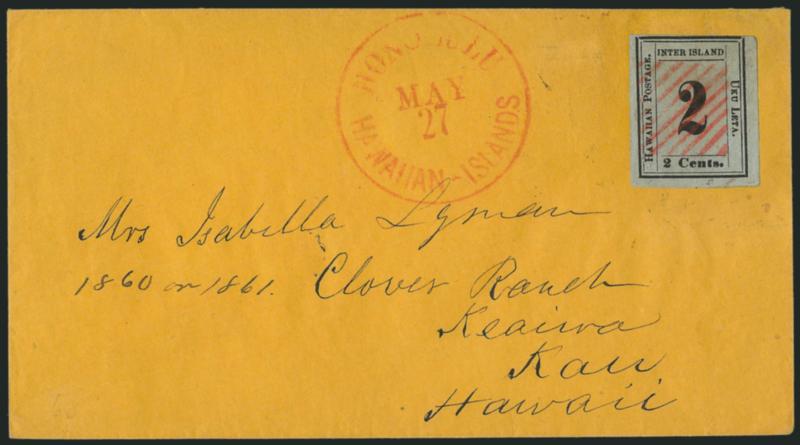 HONOLULU
MAY
27
HAWAIIAN-ISLANDS
INTER ISLAND
HAWAIIAN POSTAGE.
2
UKU LETA.
2 Cents.
Mrs Isabella Lyman
1860 or 1861. Clover Ranch
Keaiwa
Kau
Hawaii